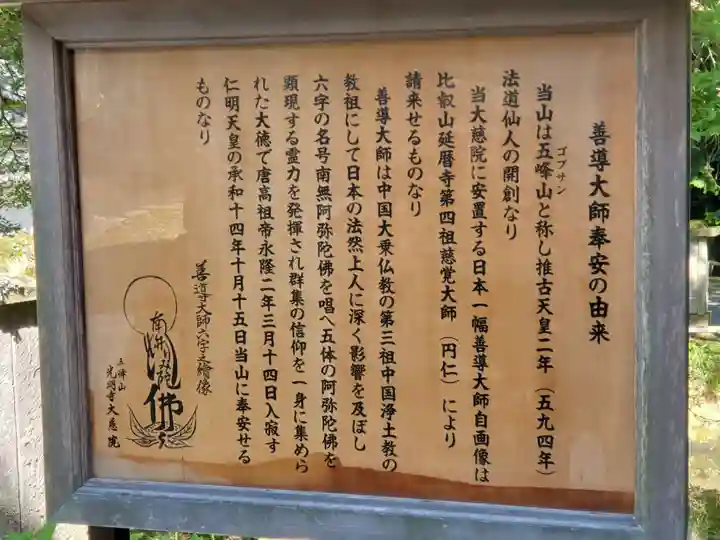 善導大師奉安の由来
ゴブサン
当山は五峰山と称し推古天皇二年（五九四年）
法道仙人の開創なり
当大慈院に安置する日本一幅善導大師自画像は
比叡山延暦寺第四祖慈覚大師（円仁）により
請来せるものなり
善導大師は中国大乗仏教の第三祖中国浄土教の
教祖にして日本の法然上人に深く影響を及ぼし
六字の名号南無阿弥陀佛を唱へ五体の阿弥陀佛を
顕現する霊力を発揮され群集の信仰を一身に集めら
れた大徳で唐高祖帝永隆二年三月十四日入寂す
仁明天皇の承和十四年十月十五日当山に奉安せる
ものなり
善導大師六字之繪像
南無阿弥陀佛
五峰山
光明寺大慈院